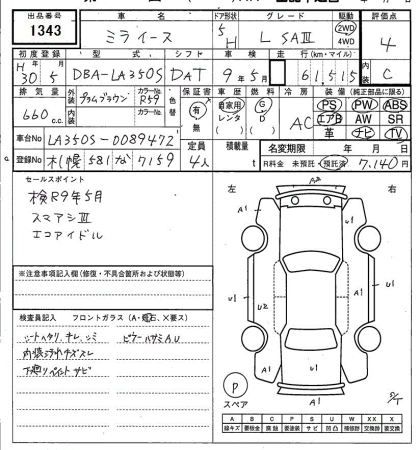 出品番号 車名 ドア形状 グレード 駆動 評価点
1343 ミライース 5 H L SAⅢ 2WD 4WD 4
初度登録 型式 シフト 車検 走行(km・マイル) 内装
H 30年 5月 DBA-LA350S DAT 9年5月 61,515 C
排気量 外装 プラムブラウン カラーNo. R59 色替 保証書 車歴 燃料 冷房 装備(純正部品に限る)
660 c.c. 内装 カラーNo. 有 無 自家用 レンタ ( ) G D ( ) AC PS PW ABS
エアB AW SR
革 ナビ TV
車台No LA350S-0089472 定員 積載量 名変期限 年 月 日
登録No 札幌 581 7159 4人 t R料金 未預託・預託済 7,140円
セールスポイント
検R9年5月
スマアシⅢ
エコアイドル
左 右
A2
A1
U1
U2
U1
A1
A1
※注意事項記入欄(修復・不具合箇所および状態等)
検査員記入 フロントガラス(A・飛石、X要ス)
シートヘタリ、キレ、シミ
内装汚れキズスレ
下廻りペイントサビ
P
スペア
A B C P S U W X XX
線キズ 要板金 腐蝕 要塗装 サビ 凹凸 補修跡 交換跡 要交換